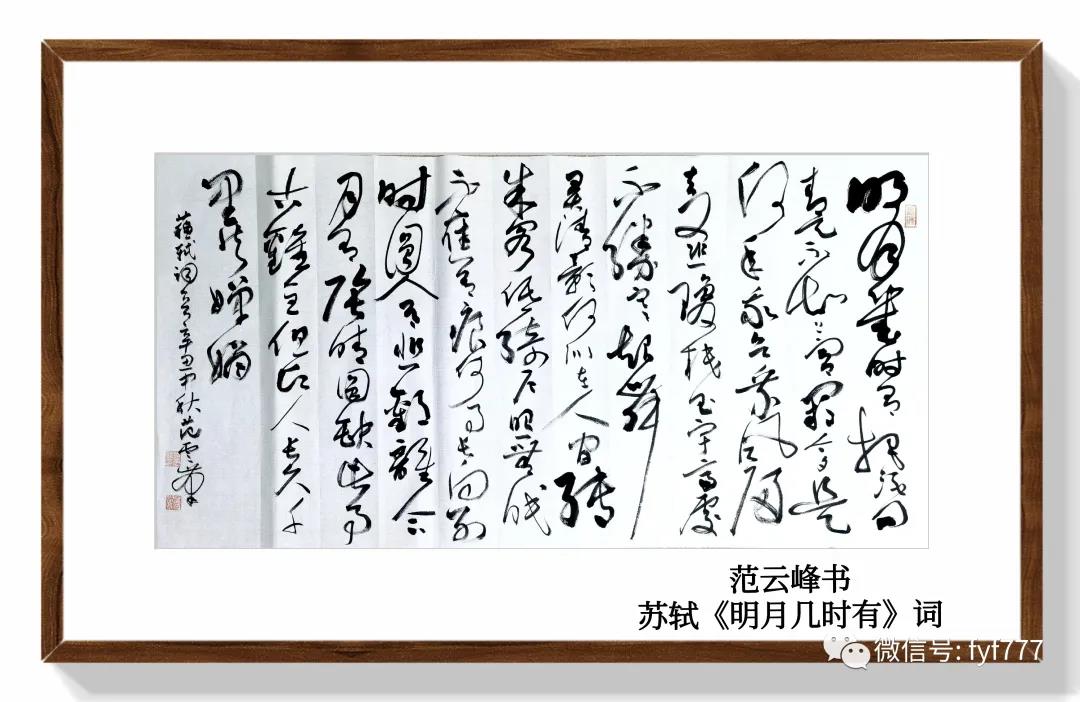 明月幾时有把酒问
青天不知天上宫阙今夕是
何年我欲乘风歸
去又恐瓊楼玉宇高處
不勝寒起舞
弄清影何似在人间轉
朱阁低绮户照無眠
不應有恨何事长向别
时圆人有悲歡離合
月有陰晴圆缺此事
古難全但愿人长久千
里共嬋娟
蘇軾词意辛丑中秋范云峰
范云峰书
苏轼《明月几时有》词
微信号: fyf777